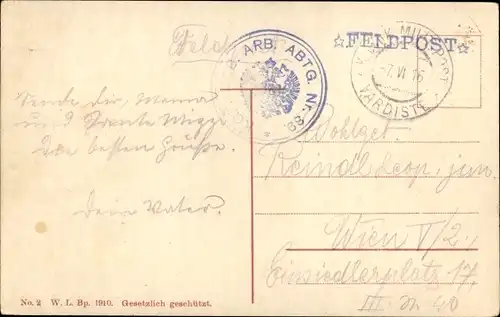 Feld
☆FELDPOST☆
ARB. ABTG. Nr. 8
K.u.K. MILIT. POST
7. VI 16
VARDISTE
Sende dir, Mama
und Tante Mizzi
die besten Grüße.
Dein Vater.
Wohlgeb.
Reindl Leop. jun.
Wien V/2.
Einsiedlerplatz 17.
III. St. 40
No. 2 W. L. Bp. 1910. Gesetzlich geschützt.